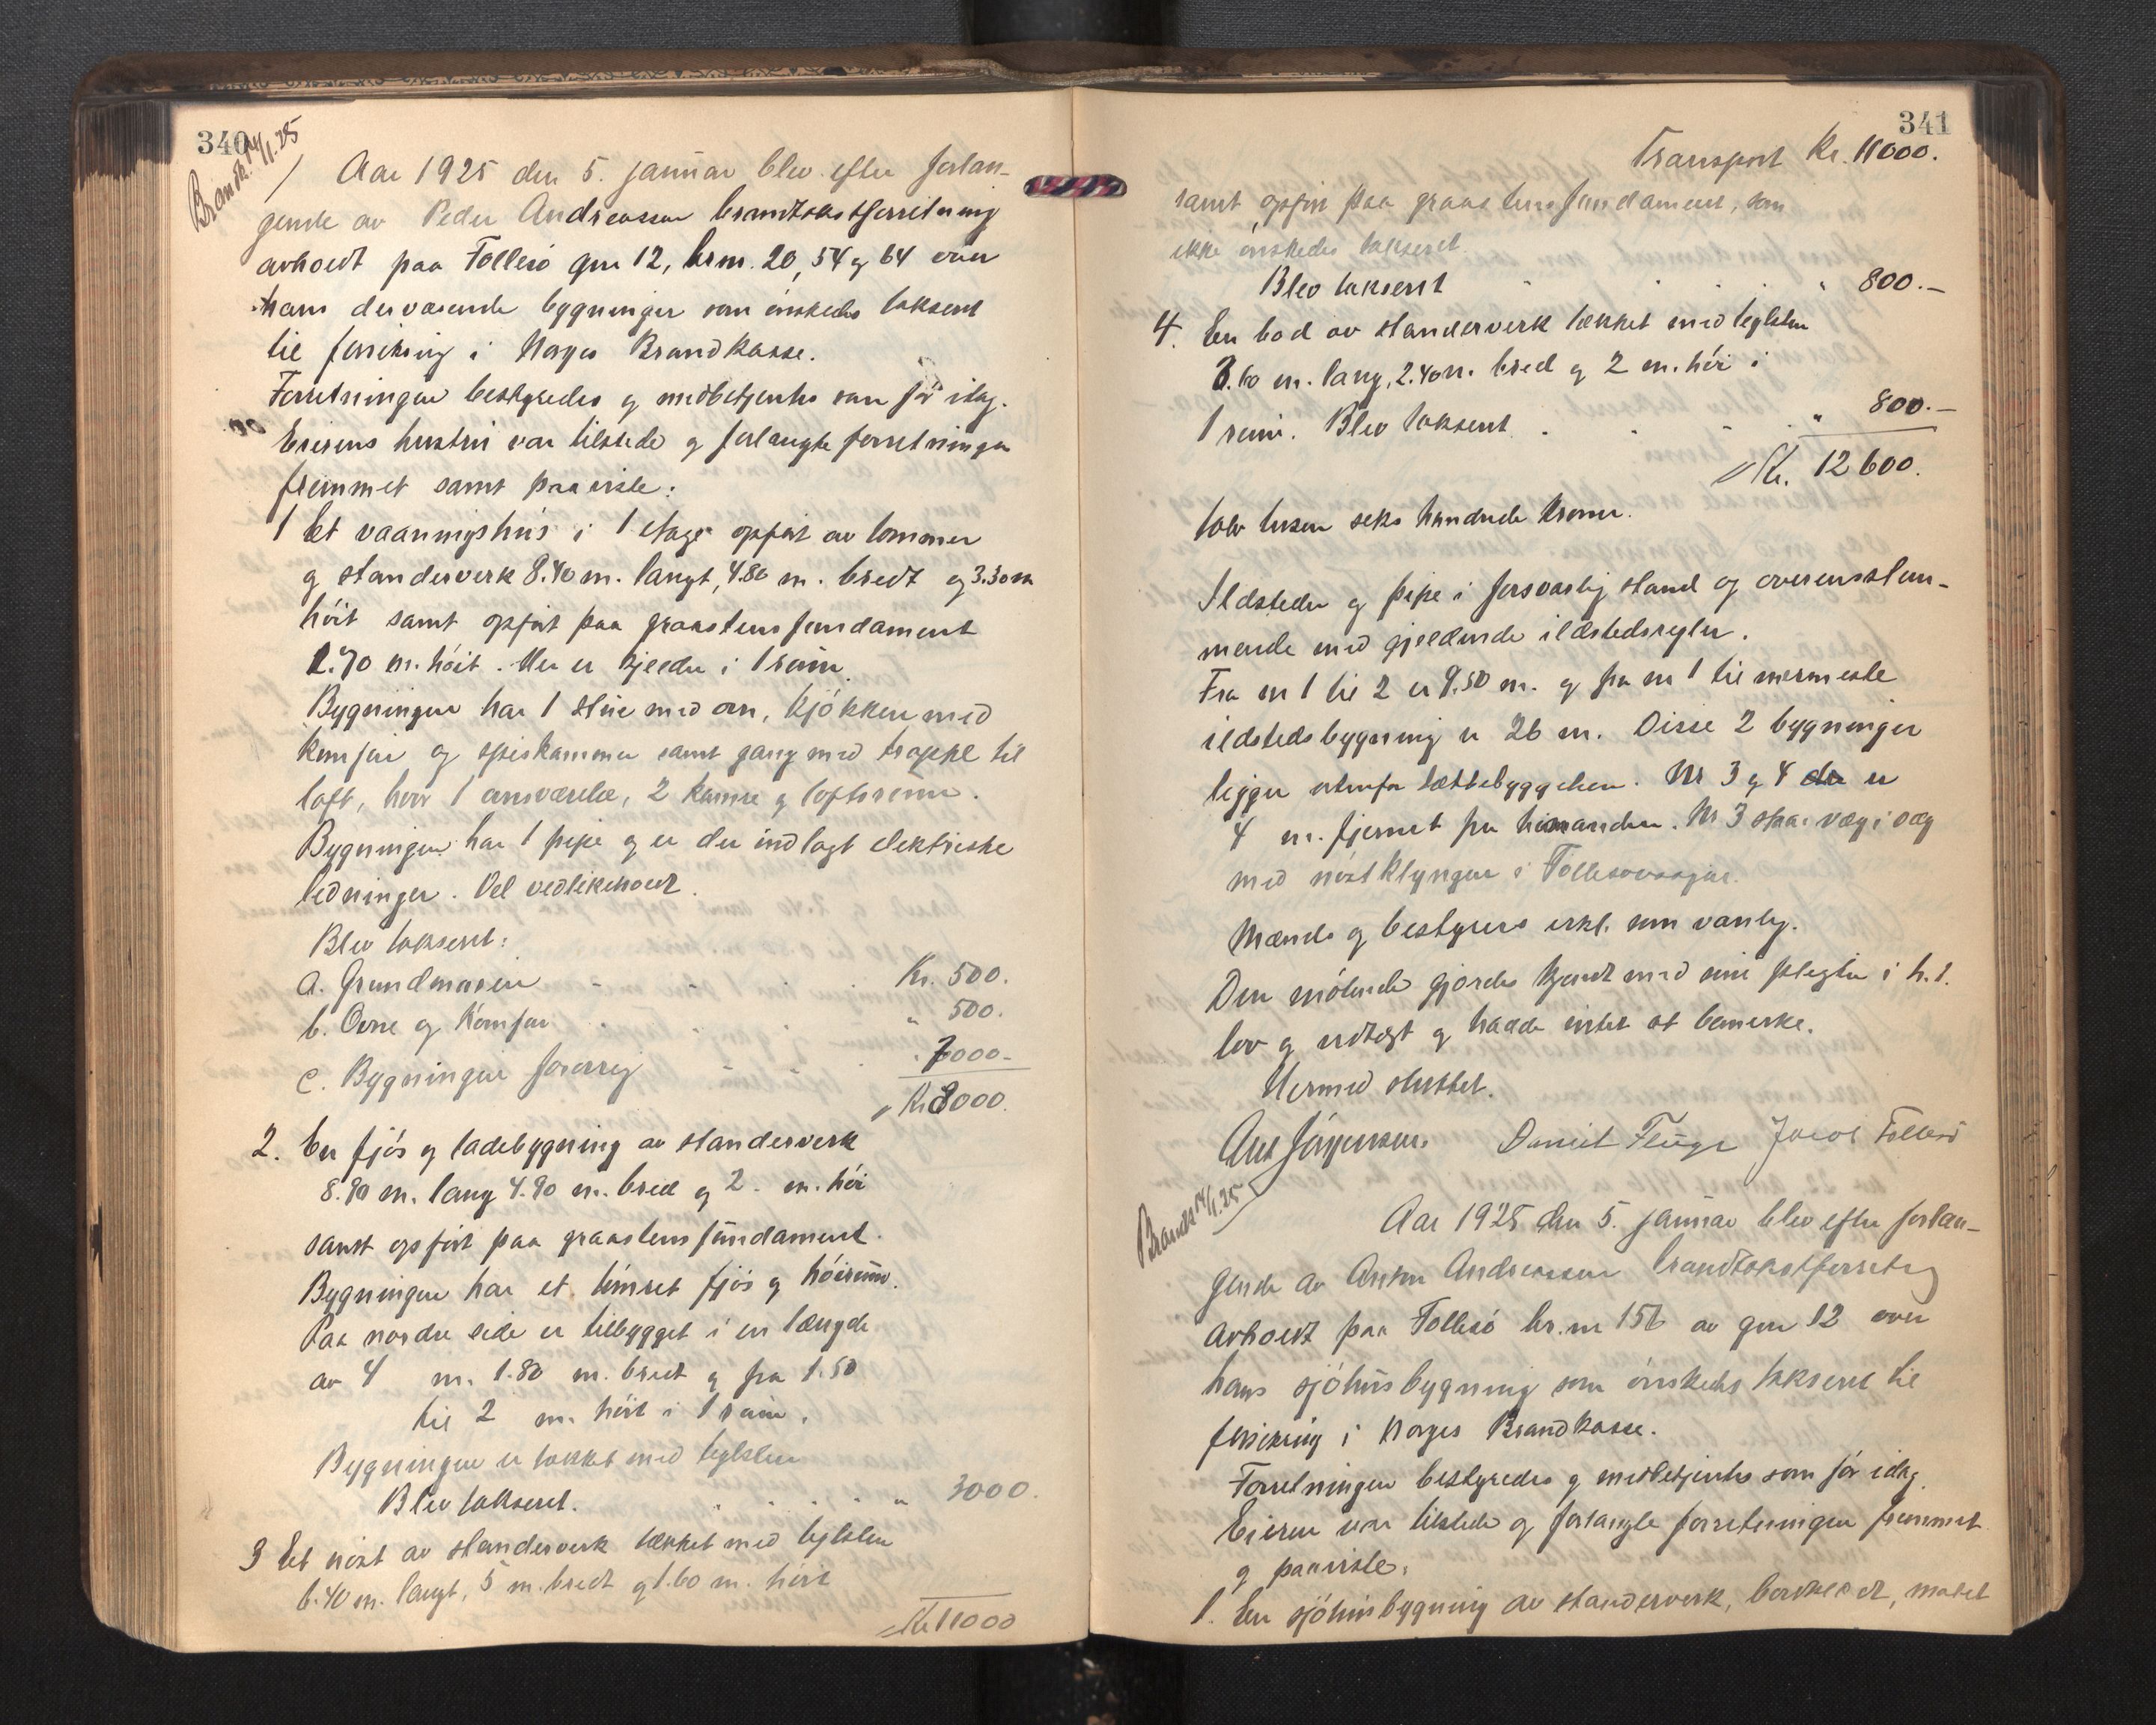 340
Brandk. 14/1.25
Aar 1925 den 5. januar blev efter forlan-
gende av Peder Andreassen brandtakstforretning
avholdt paa Follesö gnr 12, brnr. 20, 54 og 64 over
hans derværende bygninger som önskedes taksert
til forsikring i Norges Brandkasse.
Forretningen bestyredes og medbetjentes som för idag.
Eierens hustru var tilstede og forlangte forretningen
fremmet samt paaviste:
1 Et vaaningshus i 1 etage opfört av tømmer
og standerverk 8.40 m. langt, 4.80 m. bredt og 3.30 m
höit samt opfört paa graastensfundament
1.70 m. höit. Her er kjelder i 1 rum.
Bygningen har 1 stue med ovn, kjökken med
komfur og spiskammer samt gang med trappe til
loft, hvor 1 arsværelse, 2 kamre og loftsrum.
Bygningen har 1 pipe og er der indlagt elektriske
ledninger. Vel vedlikeholdt.
Blev taksert:
a. Grundmuren Kr. 500.
b. Ovne og Komfur " 500.
c. Bygningen forövrig " 7000-
Kr. 8000.
2. En fjös og ladebygning av standerverk
8.90 m. lang 4.90 m. bred og 2 m. höi
samt opfört paa graastensfundament.
Bygningen har et tömret fjös og höirum.
Paa nordre side er tilbygget i en længde
av 4 m. 1.80 m. bredt og fra 1.50
til 2 m. höit i 1 rum.
Bygningen er tækket med teglsten
Blev taksert. " 3000.
3 Et nöst av standerverk tækket med teglsten
6.40 m. langt, 5 m. bredt og 1.60 m. höit
Kr 11000
341
Transport Kr. 11000.
samt opfört paa graastensfundament, som
ikke önskedes taksert.
Blev taksert " 800.-
4. En bod av standerverk tækket med teglsten
3.60 m. lang, 2.40 m. bred og 2 m. höi i
1 rum. Blev taksert " 800.-
Kr. 12600.
tolv tusen seks hundrede kroner.
Ildsteder og pipe i forsvarlig stand og overensstem-
mende med gjeldende ildstedsregler.
Fra nr 1 til 2 er 9.50 m. og fra nr 1 til nermeste
ildstedsbygning er 26 m. Disse 2 bygninger
ligger utenfor tættebyggelsen. Nr 3 og 4 er
4 m. fjernet fra hinanden. Nr 3 staar væg i væg
med nöstklyngen i Follesövaagen.
Mænds og bestyrers erkl. som vanlig.
Den mötende gjordes kjendt med sine plegter i h. t.
lov og vedtægt og hadde intet at bemerke.
Hermed sluttet.
Ant Jörgensen. Daniel Fluge Jacob Follesö
Brandk 14/1.25
Aar 1925 den 5. januar blev efter forlan-
gende av Anton Andreassen brandtakstforretng
avholdt paa Follesö br.nr 156 av gnr 12 over
hans sjöhusbygning som önskedes taksert til
forsikring i Norges Brandkasse.
Forretningen bestyredes og medbetjentes som för idag.
Eieren var tilstede og forlangte forretningen fremmet
og paaviste:
1. En sjöhusbygning av standerverk, bordklædt, malet